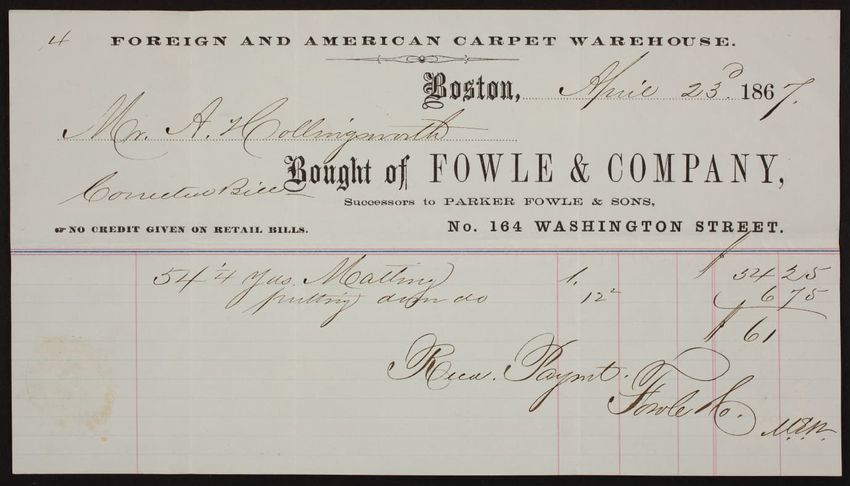 4
FOREIGN AND AMERICAN CARPET WAREHOUSE.
Boston, April 23d 1867.
Mr. A. Hollingsworth
Bought of FOWLE & COMPANY,
Corrected Bill
Successors to PARKER FOWLE & SONS,
☞ NO CREDIT GIVEN ON RETAIL BILLS.
No. 164 WASHINGTON STREET.
54 1/4 Yds Matting 1. $ 54 25
putting down do 12 6 75
$ 61
Recd. Paymt.
Fowle & Co.